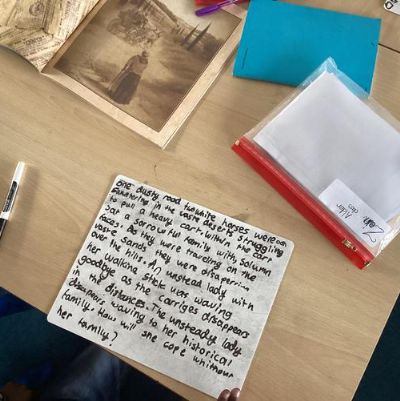 One dusty road two white horses were on
in the vaste deserts struggling
to pull a heavy cart. Within the cart
sat a sorrowful family with solumn
faces. As they were traveling on the
vaste sands they were disaperi...
over the hills. An unstead lady with
her walking stick was waving
goodbye as the carriges disappears
in the distances. The unsteady lady
waving to her historical
family. How will she cope whithour
her family?
Aider
class